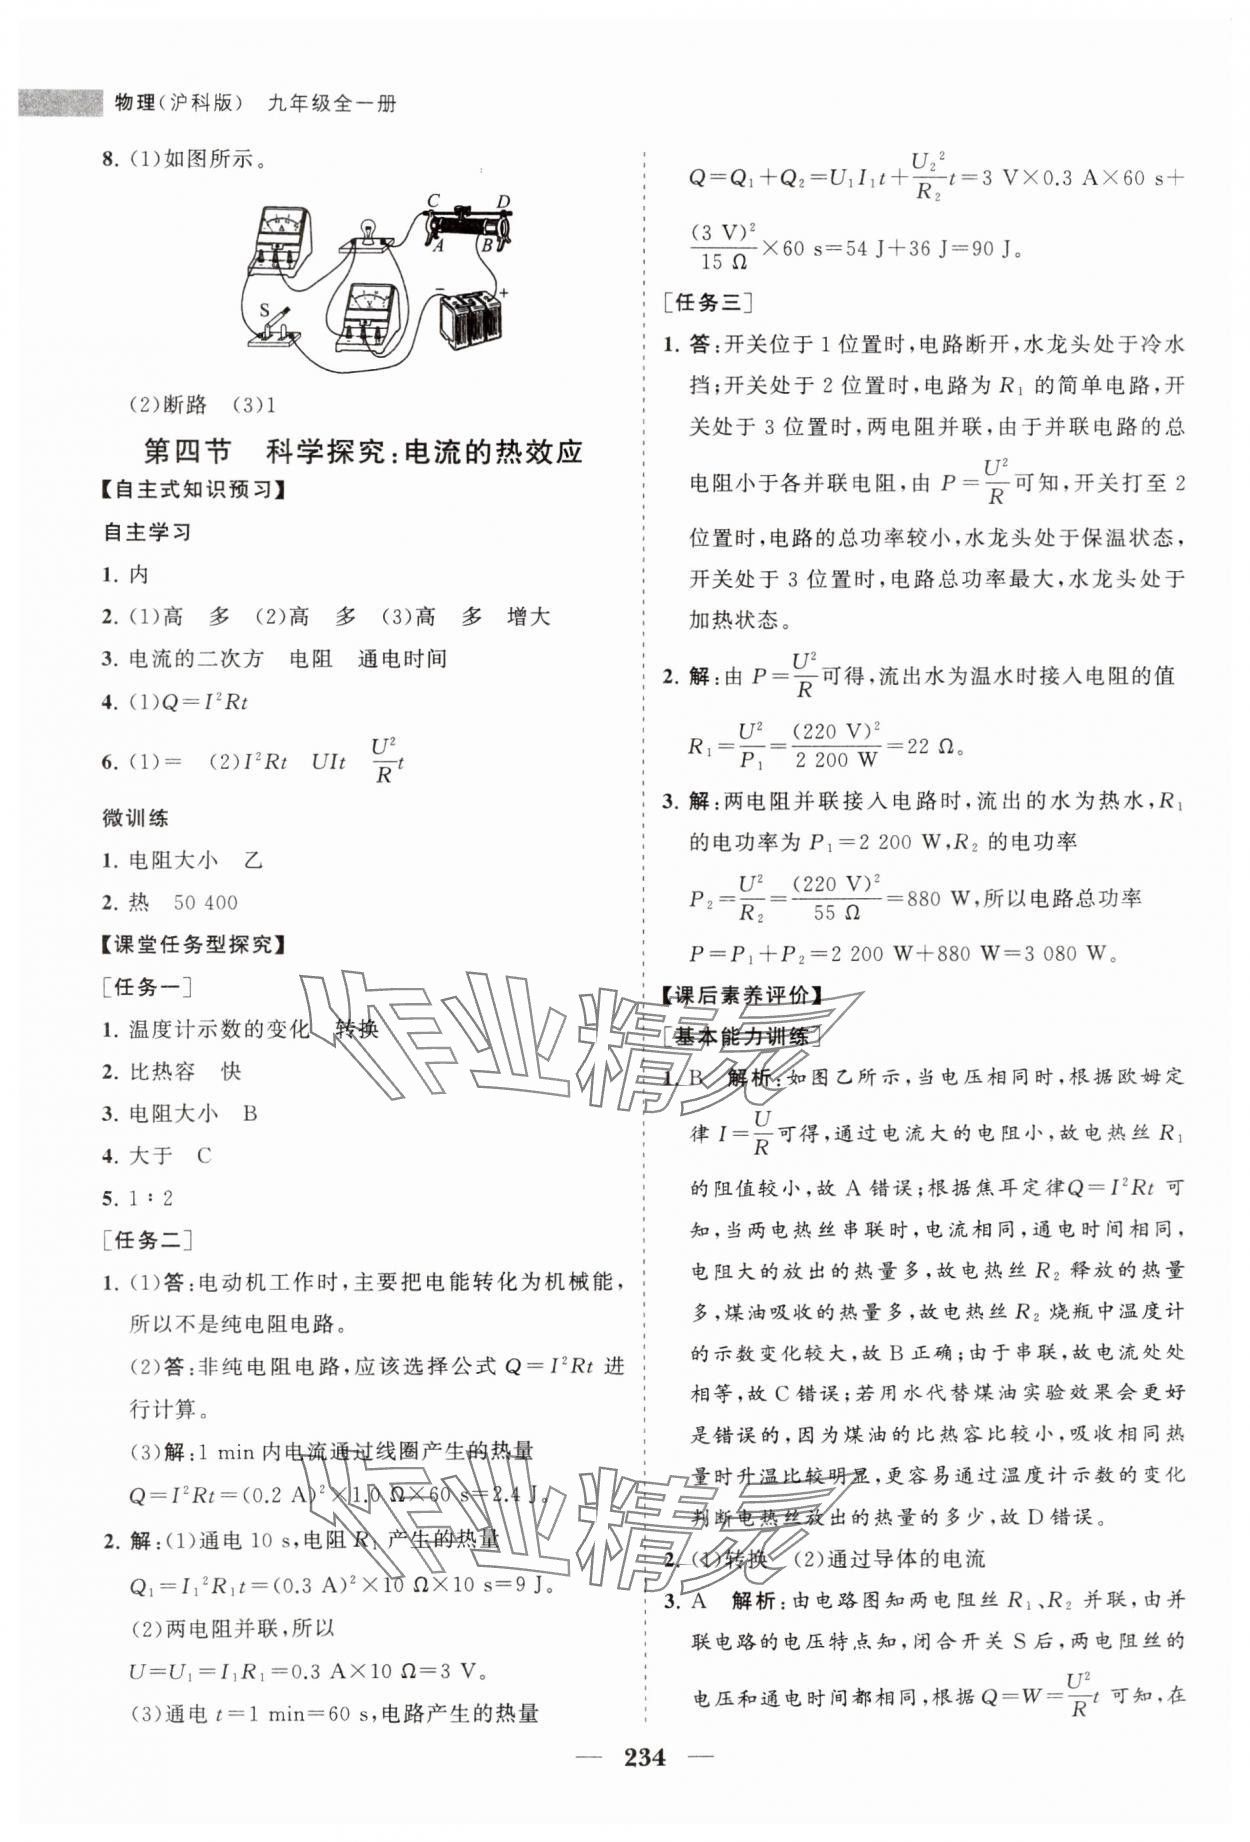 物理(沪科版) 九年级全一册
8. (1)如图所示。
C D
A B
S
- +
(2)断路 (3)1
第四节 科学探究:电流的热效应
【自主式知识预习】
自主学习
1. 内
2. (1)高 多 (2)高 多 (3)高 多 增大
3. 电流的二次方 电阻 通电时间
4. (1)Q=I²Rt
6. (1)= (2)I²Rt UIt U²/R t
微训练
1. 电阻大小 乙
2. 热 50 400
【课堂任务型探究】
[任务一]
1. 温度计示数的变化 转换
2. 比热容 快
3. 电阻大小 B
4. 大于 C
5. 1∶2
[任务二]
1. (1)答:电动机工作时,主要把电能转化为机械能,
所以不是纯电阻电路。
(2)答:非纯电阻电路,应该选择公式 Q=I²Rt 进
行计算。
(3)解:1 min内电流通过线圈产生的热量
Q=I²Rt=(0.2 A)²×1.0 Ω×60 s=2.4 J。
2. 解:(1)通电 10 s,电阻 R₁ 产生的热量
Q₁=I₁²R₁t=(0.3 A)²×10 Ω×10 s=9 J。
(2)两电阻并联,所以
U=U₁=I₁R₁=0.3 A×10 Ω=3 V。
(3)通电 t=1 min=60 s,电路产生的热量
Q=Q₁+Q₂=U₁I₁t+U₂²/R₂ t=3 V×0.3 A×60 s+
(3 V)²/15 Ω×60 s=54 J+36 J=90 J。
[任务三]
1. 答:开关位于 1 位置时,电路断开,水龙头处于冷水
挡;开关处于 2 位置时,电路为 R₁ 的简单电路,开
关处于 3 位置时,两电阻并联,由于并联电路的总
电阻小于各并联电阻,由 P=U²/R可知,开关打至 2
位置时,电路的总功率较小,水龙头处于保温状态,
开关处于 3 位置时,电路总功率最大,水龙头处于
加热状态。
2. 解:由 P=U²/R可得,流出水为温水时接入电阻的值
R₁=U²/P₁=(220 V)²/2 200 W=22 Ω。
3. 解:两电阻并联接入电路时,流出的水为热水,R₁
的电功率为 P₁=2 200 W,R₂ 的电功率
P₂=U²/R₂=(220 V)²/55 Ω=880 W,所以电路总功率
P=P₁+P₂=2 200 W+880 W=3 080 W。
【课后素养评价】
[基本能力训练]
1. B 解析:如图乙所示,当电压相同时,根据欧姆定
律 I=U/R可得,通过电流大的电阻小,故电热丝 R₁
的阻值较小,故 A 错误;根据焦耳定律Q=I²Rt 可
知,当两电热丝串联时,电流相同,通电时间相同,
电阻大的放出的热量多,故电热丝 R₂ 释放的热量
多,煤油吸收的热量多,故电热丝 R₂ 烧瓶中温度计
的示数变化较大,故 B 正确;由于串联,故电流处处
相等,故 C 错误;若用水代替煤油实验效果会更好
是错误的,因为煤油的比热容比较小,吸收相同热
量时升温比较明显,更容易通过温度计示数的变化
判断电热丝放出的热量的多少,故 D 错误。
2. (1)转换 (2)通过导体的电流
3. A 解析:由电路图知两电阻丝 R₁、R₂ 并联,由并
联电路的电压特点知,闭合开关 S 后,两电阻丝的
电压和通电时间都相同,根据 Q=W=U²/R t 可知,在
— 234 —
作业精灵
作业精灵